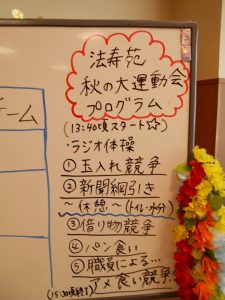 チーム
法寿苑
秋の大運動会
プログラム
(13:40頃スタート☆)
・ラジオ体操
① 玉入れ競争
② 新聞綱引き
～休憩～(トイレ・水分)
③ 借り物競争
④ パン食い
⑤ 職員による…
アメ食い競争!
(15:30頃終了)